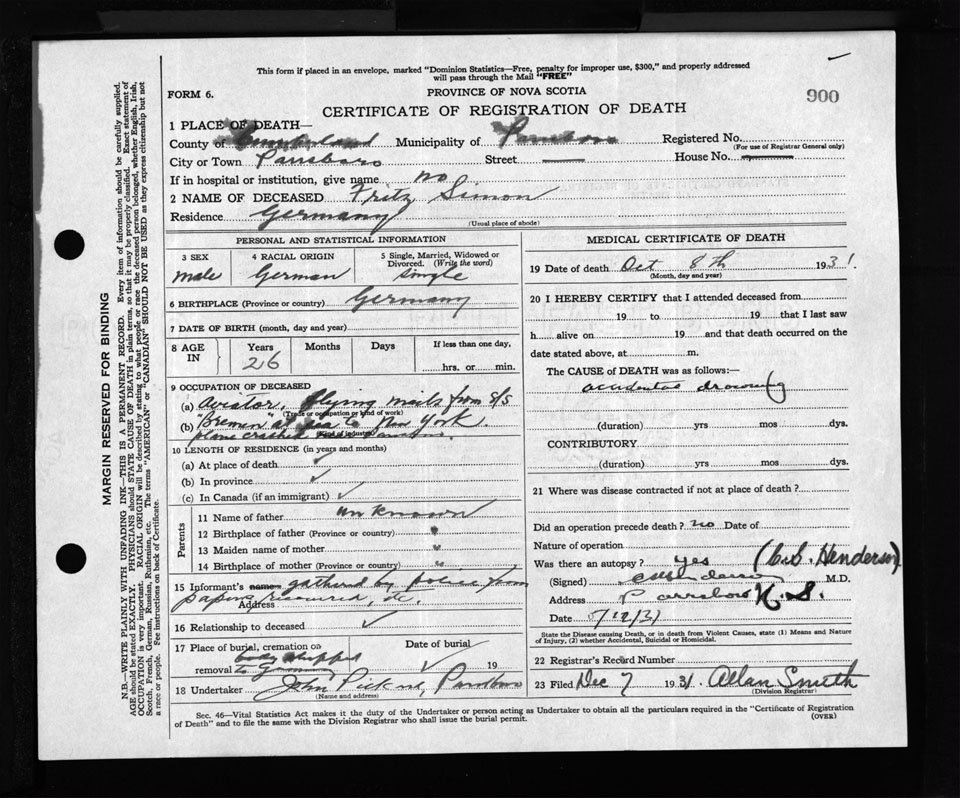 This form if placed in an envelope, marked "Dominion Statistics—Free, penalty for improper use, $300," and properly addressed
will pass through the Mail "FREE"
FORM 6.
PROVINCE OF NOVA SCOTIA
900
CERTIFICATE OF REGISTRATION OF DEATH
1 PLACE OF DEATH—
County of Cumberland Municipality of Parrsboro Registered No.
(For use of Registrar General only)
City or Town Parrsboro Street — House No. —
If in hospital or institution, give name no
2 NAME OF DECEASED Fritz Simon
Residence Germany
(Usual place of abode)
PERSONAL AND STATISTICAL INFORMATION
3 SEX 4 RACIAL ORIGIN 5 Single, Married, Widowed or
Divorced. (Write the word)
male German single
6 BIRTHPLACE (Province or country) Germany
7 DATE OF BIRTH (month, day and year)
8 AGE IN Years Months Days If less than one day,
26 hrs. or min.
9 OCCUPATION OF DECEASED
(a) Aviator, flying mails from S/S
(Trade or occupation or kind of work)
(b) "Bremen" at sea to New York
plane crashed
10 LENGTH OF RESIDENCE (in years and months)
(a) At place of death ✓
(b) In province ✓
(c) In Canada (if an immigrant) ✓
Parents
11 Name of father unknown
12 Birthplace of father (Province or country) "
13 Maiden name of mother "
14 Birthplace of mother (Province or country) "
15 Informant's name gathered by police from
papers recovered, etc.
Address
16 Relationship to deceased ✓
17 Place of burial, cremation or Date of burial
body shipped
removal to Germany ✓ 19
18 Undertaker John Pickard, Parrsboro
(Name and address)
MEDICAL CERTIFICATE OF DEATH
19 Date of death Oct 8th 1931
(Month, day and year)
20 I HEREBY CERTIFY that I attended deceased from
19 to 19 that I last saw
h alive on 19 and that death occurred on
date stated above, at m.
The CAUSE of DEATH was as follows:—
accidental drowning
(duration) yrs mos dys.
CONTRIBUTORY
(duration) yrs mos dys.
21 Where was disease contracted if not at place of death?
Did an operation precede death? no Date of
Nature of operation
Was there an autopsy? yes Henderson)
(Signed) M.D.
Address Parrsboro N.S.
Date 7/12/31
State the Disease causing Death, or in death from Violent Causes, state (1) Means and Nature
of Injury, (2) whether Accidental, Suicidal or Homicidal.
22 Registrar's Record Number
23 Filed Dec 7 1931 Allan Smith
(Division Registrar)
Sec. 46—Vital Statistics Act makes it the duty of the Undertaker or person acting as Undertaker to obtain all the particulars required in the "Certificate of Registration
of Death" and to file the same with the Division Registrar who shall issue the burial permit.
(OVER)
MARGIN RESERVED FOR BINDING
N.B.—WRITE PLAINLY WITH UNFADING INK—THIS IS A PERMANENT RECORD. Every item of information should be carefully supplied.
AGE should be stated EXACTLY. PHYSICIANS should STATE CAUSE OF DEATH in plain terms, so that it may be properly classified. Exact statement of
OCCUPATION is very important. RACIAL ORIGIN will be described by stating to what people or race the deceased person belonged, whether English, Irish,
Scotch, French, German, Russian, Ruthenian, etc. The terms "AMERICAN" or "CANADIAN" SHOULD NOT BE USED as they express citizenship but not
a race or people. Fee instructions on back of Certificate.